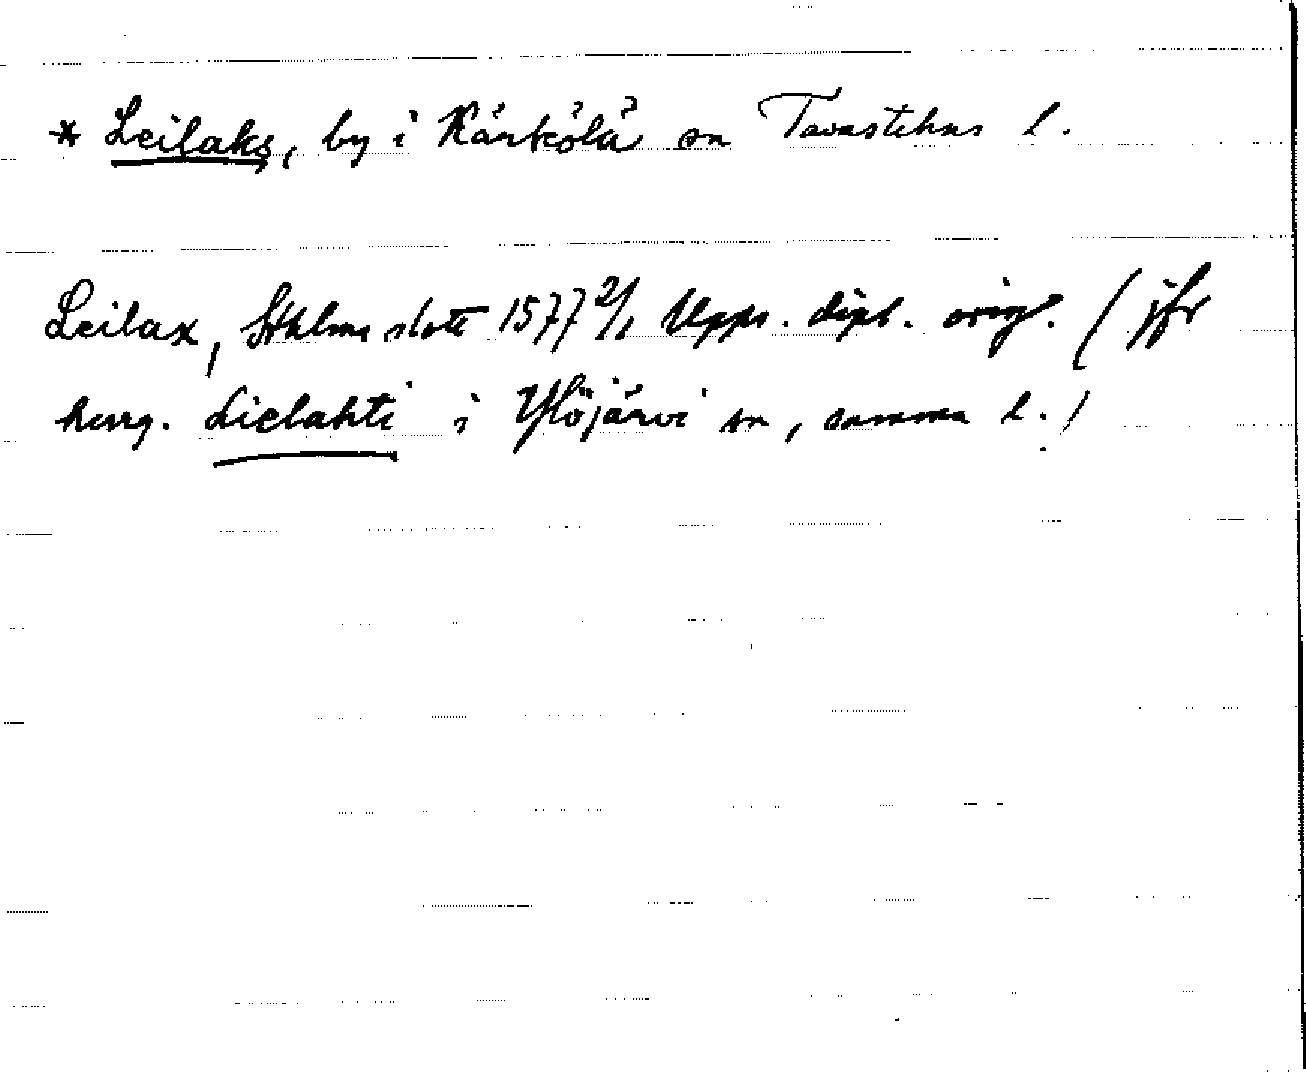 * Leilaks, by i Kärkölä sn Tavastehus l.
Leilax, Sthlms slott 1577 2/1 Upps. dipl. orig. (jfr
herrg. Lielahti i Ylöjärvi sn, samma l.)